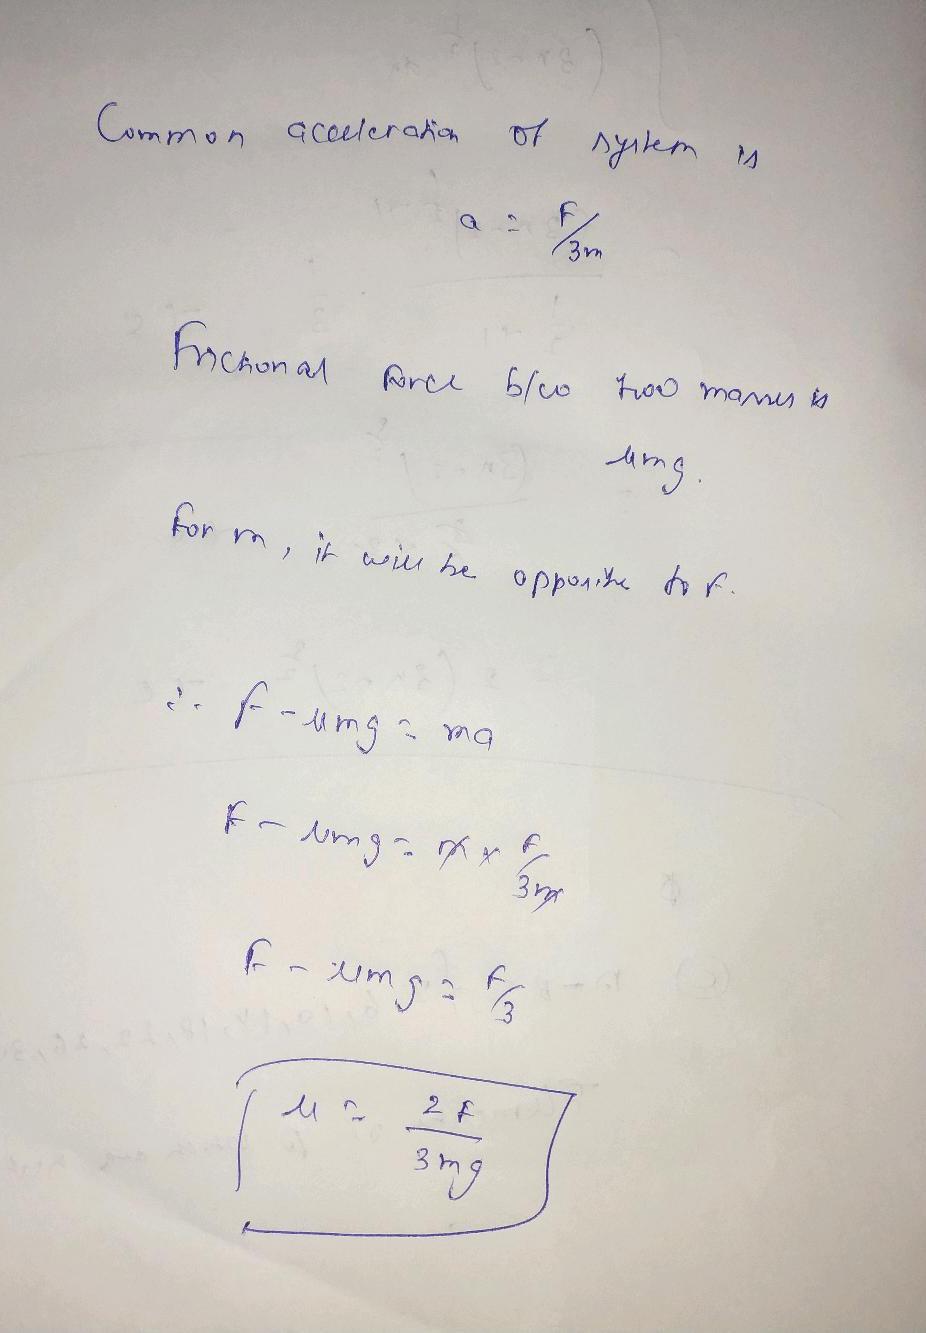 Common acceleration of system is
a = F/3m
Frictional force b/w two masses is
μmg.
For m, it will be opposite to F.
∴ F - μmg = ma
F - μmg = m × F/3m
F - μmg = F/3
μ = 2F/3mg